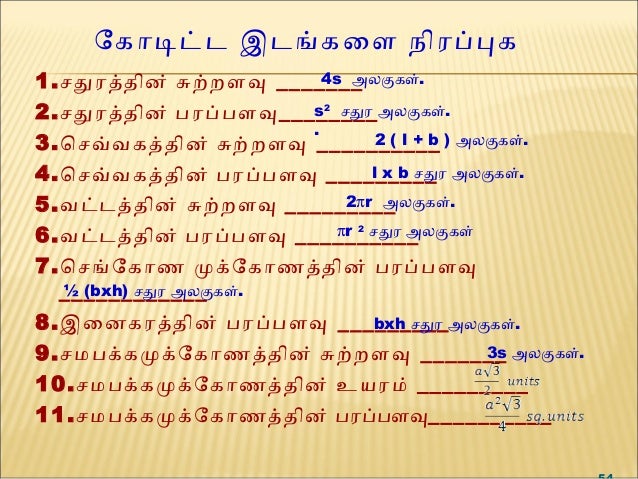 கோடிட்ட இடங்களை நிரப்புக
1.சதுரத்தின் சுற்றளவு _______ 4s அலகுகள்.
2.சதுரத்தின் பரப்பளவு________ s² சதுர அலகுகள்.
.
3.செவ்வகத்தின் சுற்றளவு __________ 2 ( l + b ) அலகுகள்.
4.செவ்வகத்தின் பரப்பளவு _________ l x b சதுர அலகுகள்.
5.வட்டத்தின் சுற்றளவு _________ 2πr அலகுகள்.
6.வட்டத்தின் பரப்பளவு __________ πr ² சதுர அலகுகள்
7.செங்கோண முக்கோணத்தின் பரப்பளவு
____________ ½ (bxh) சதுர அலகுகள்.
8.இனைகரத்தின் பரப்பளவு _________ bxh சதுர அலகுகள்.
9.சமபக்கமுக்கோணத்தின் சுற்றளவு _______ 3s அலகுகள்.
10.சமபக்கமுக்கோணத்தின் உயரம் _________ a√3/2 units
11.சமபக்கமுக்கோணத்தின் பரப்பளவு__________ a²√3/4 sq.units
54